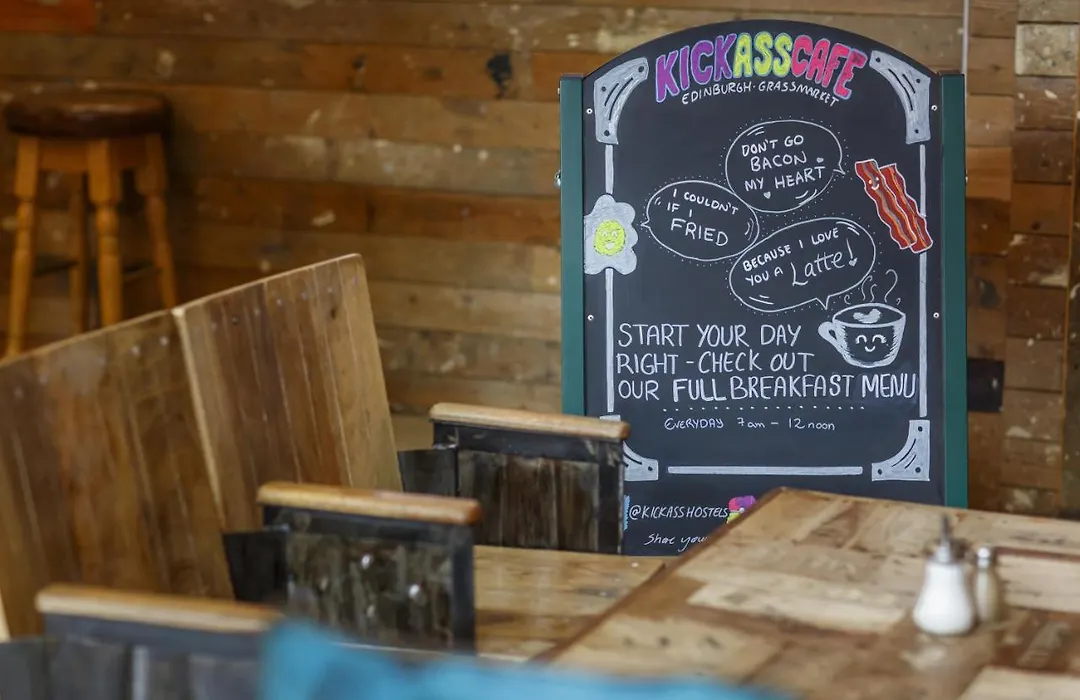 KICKASSCAFE
EDINBURGH · GRASSMARKET
DON'T GO
BACON
MY HEART
I COULDN'T
IF I
FRIED
BECAUSE I LOVE
YOU A Latte!
START YOUR DAY
RIGHT - CHECK OUT
OUR FULL BREAKFAST MENU
EVERYDAY 7am - 12 noon
@KICKASSHOSTELS
Share your